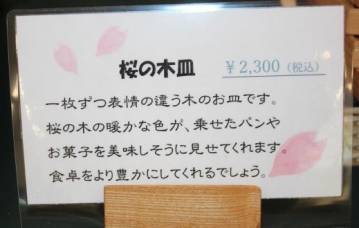 桜の木皿 ¥2,300(税込)
一枚ずつ表情の違う木のお皿です。
桜の木の暖かな色が、乗せたパンや
お菓子を美味しそうに見せてくれます。
食卓をより豊かにしてくれるでしょう。